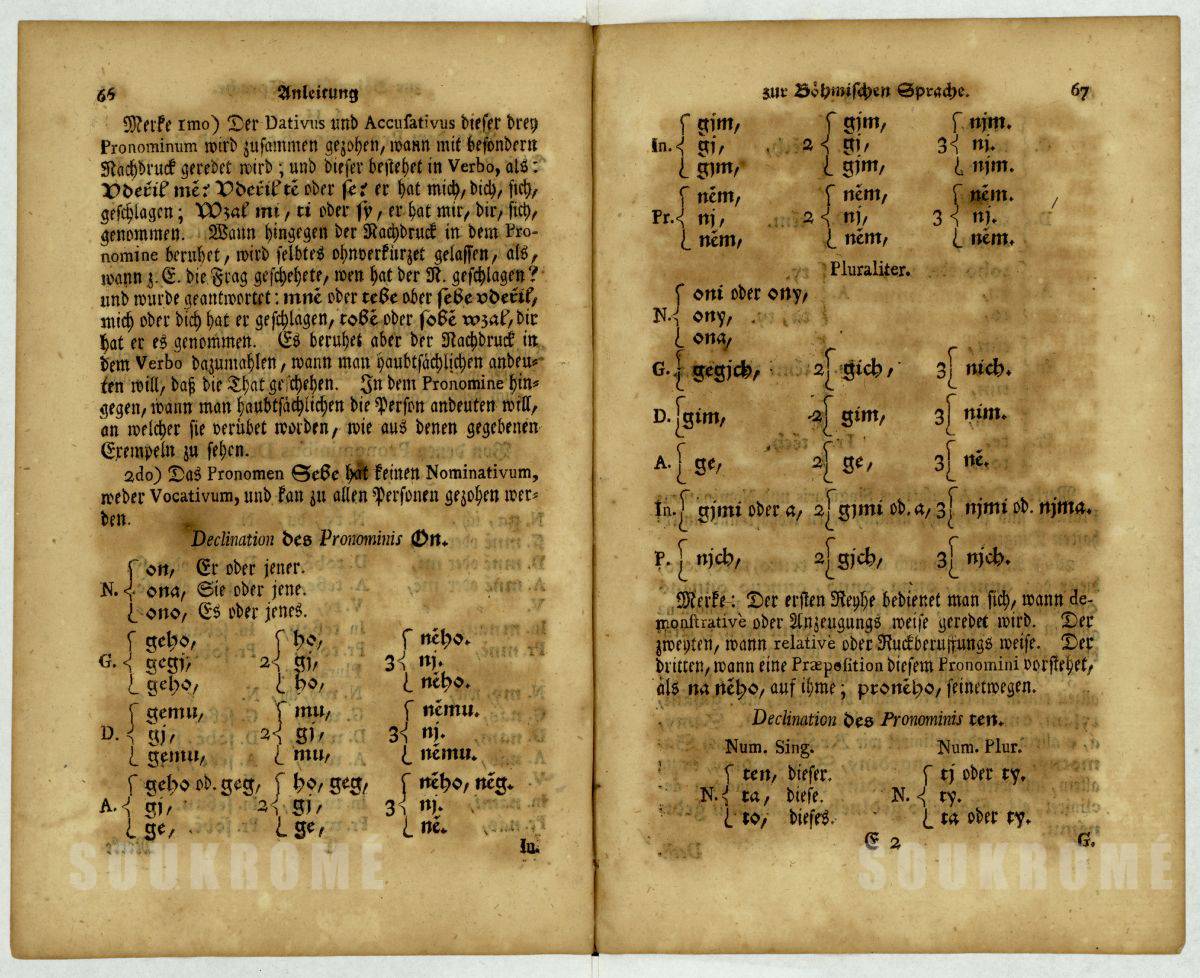 66 Anleitung
Merke 1mo) Der Dativus und Accusativus dieser drey
Pronominum wird zusammen gezohen, wann mit besondern
Nachdruck geredet wird; und dieser bestehet in Verbo, als:
Vdeřil mě: Vdeřil tě oder se: er hat mich, dich, sich,
geschlagen; Wzal mi, ti oder sy, er hat mir, dir, sich,
genommen. Wann hingegen der Nachdruck in dem Pro-
nomine beruhet, wird selbtes ohnverkürzet gelassen, als,
wann z. E. die Frag geschehete, wen hat der N. geschlagen?
und wurde geantwortet: mně oder tebe ober sebe vdeřil,
mich oder dich hat er geschlagen, tobě oder sobě wzal, dir
hat er es genommen. Es beruhet aber der Nachdruck in
dem Verbo dazumahlen, wann man haubtsächlichen andeu-
ten will, daß die That geschehen. In dem Pronomine hin-
gegen, wann man haubtsächlichen die Person andeuten will,
an welcher sie verübet worden, wie aus denen gegebenen
Exempeln zu sehen.
2do) Das Pronomen Sebe hat keinen Nominativum,
weder Vocativum, und kan zu allen Personen gezohen wer-
den.
Declination des Pronominis On.
on, Er oder jener.
N. ona, Sie oder jene.
ono, Es oder jenes.
geho, ho, něho.
G. gegj, 2 gj, 3 nj.
geho, ho, něho.
gemu, mu, němu.
D. gj, 2 gj, 3 nj.
gemu, mu, němu.
geho od. geg, ho, geg, něho, něg.
A. gj, 2 gj, 3 nj.
ge, ge, ně.
In.
zur Böhmischen Sprache. 67
gjm, gjm, njm.
In. gj, 2 gj, 3 nj.
gjm, gjm, njm.
něm, něm, něm.
Pr. nj, 2 nj, 3 nj.
něm, něm, něm.
Pluraliter.
oni oder ony,
N. ony,
ona,
G. gegjch, 2 gich, 3 nich.
D. gim, 2 gim, 3 nim.
A. ge, 2 ge, 3 ně.
In. gjmi oder a, 2 gjmi od. a, 3 njmi od. njma.
P. njch, 2 gjch, 3 njch.
Merke: Der ersten Reyhe bedienet man sich, wann de-
monstrativè oder Anzeugungs weise geredet wird. Der
zweyten, wann relativè oder Ruckberuffungs weise. Der
dritten, wann eine Præposition diesem Pronomini vorstehet,
als na něho, auf ihme; proněho, seinetwegen.
Declination des Pronominis ten.
Num. Sing. Num. Plur.
ten, dieser. tj oder ty.
N. ta, diese. N. ty.
to, dieses. ta oder ty.
E 2 G.
SOUKROMÉ SOUKROMÉ